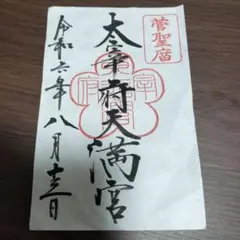 菅聖廟
太宰府天満宮
令和六年八月十三日